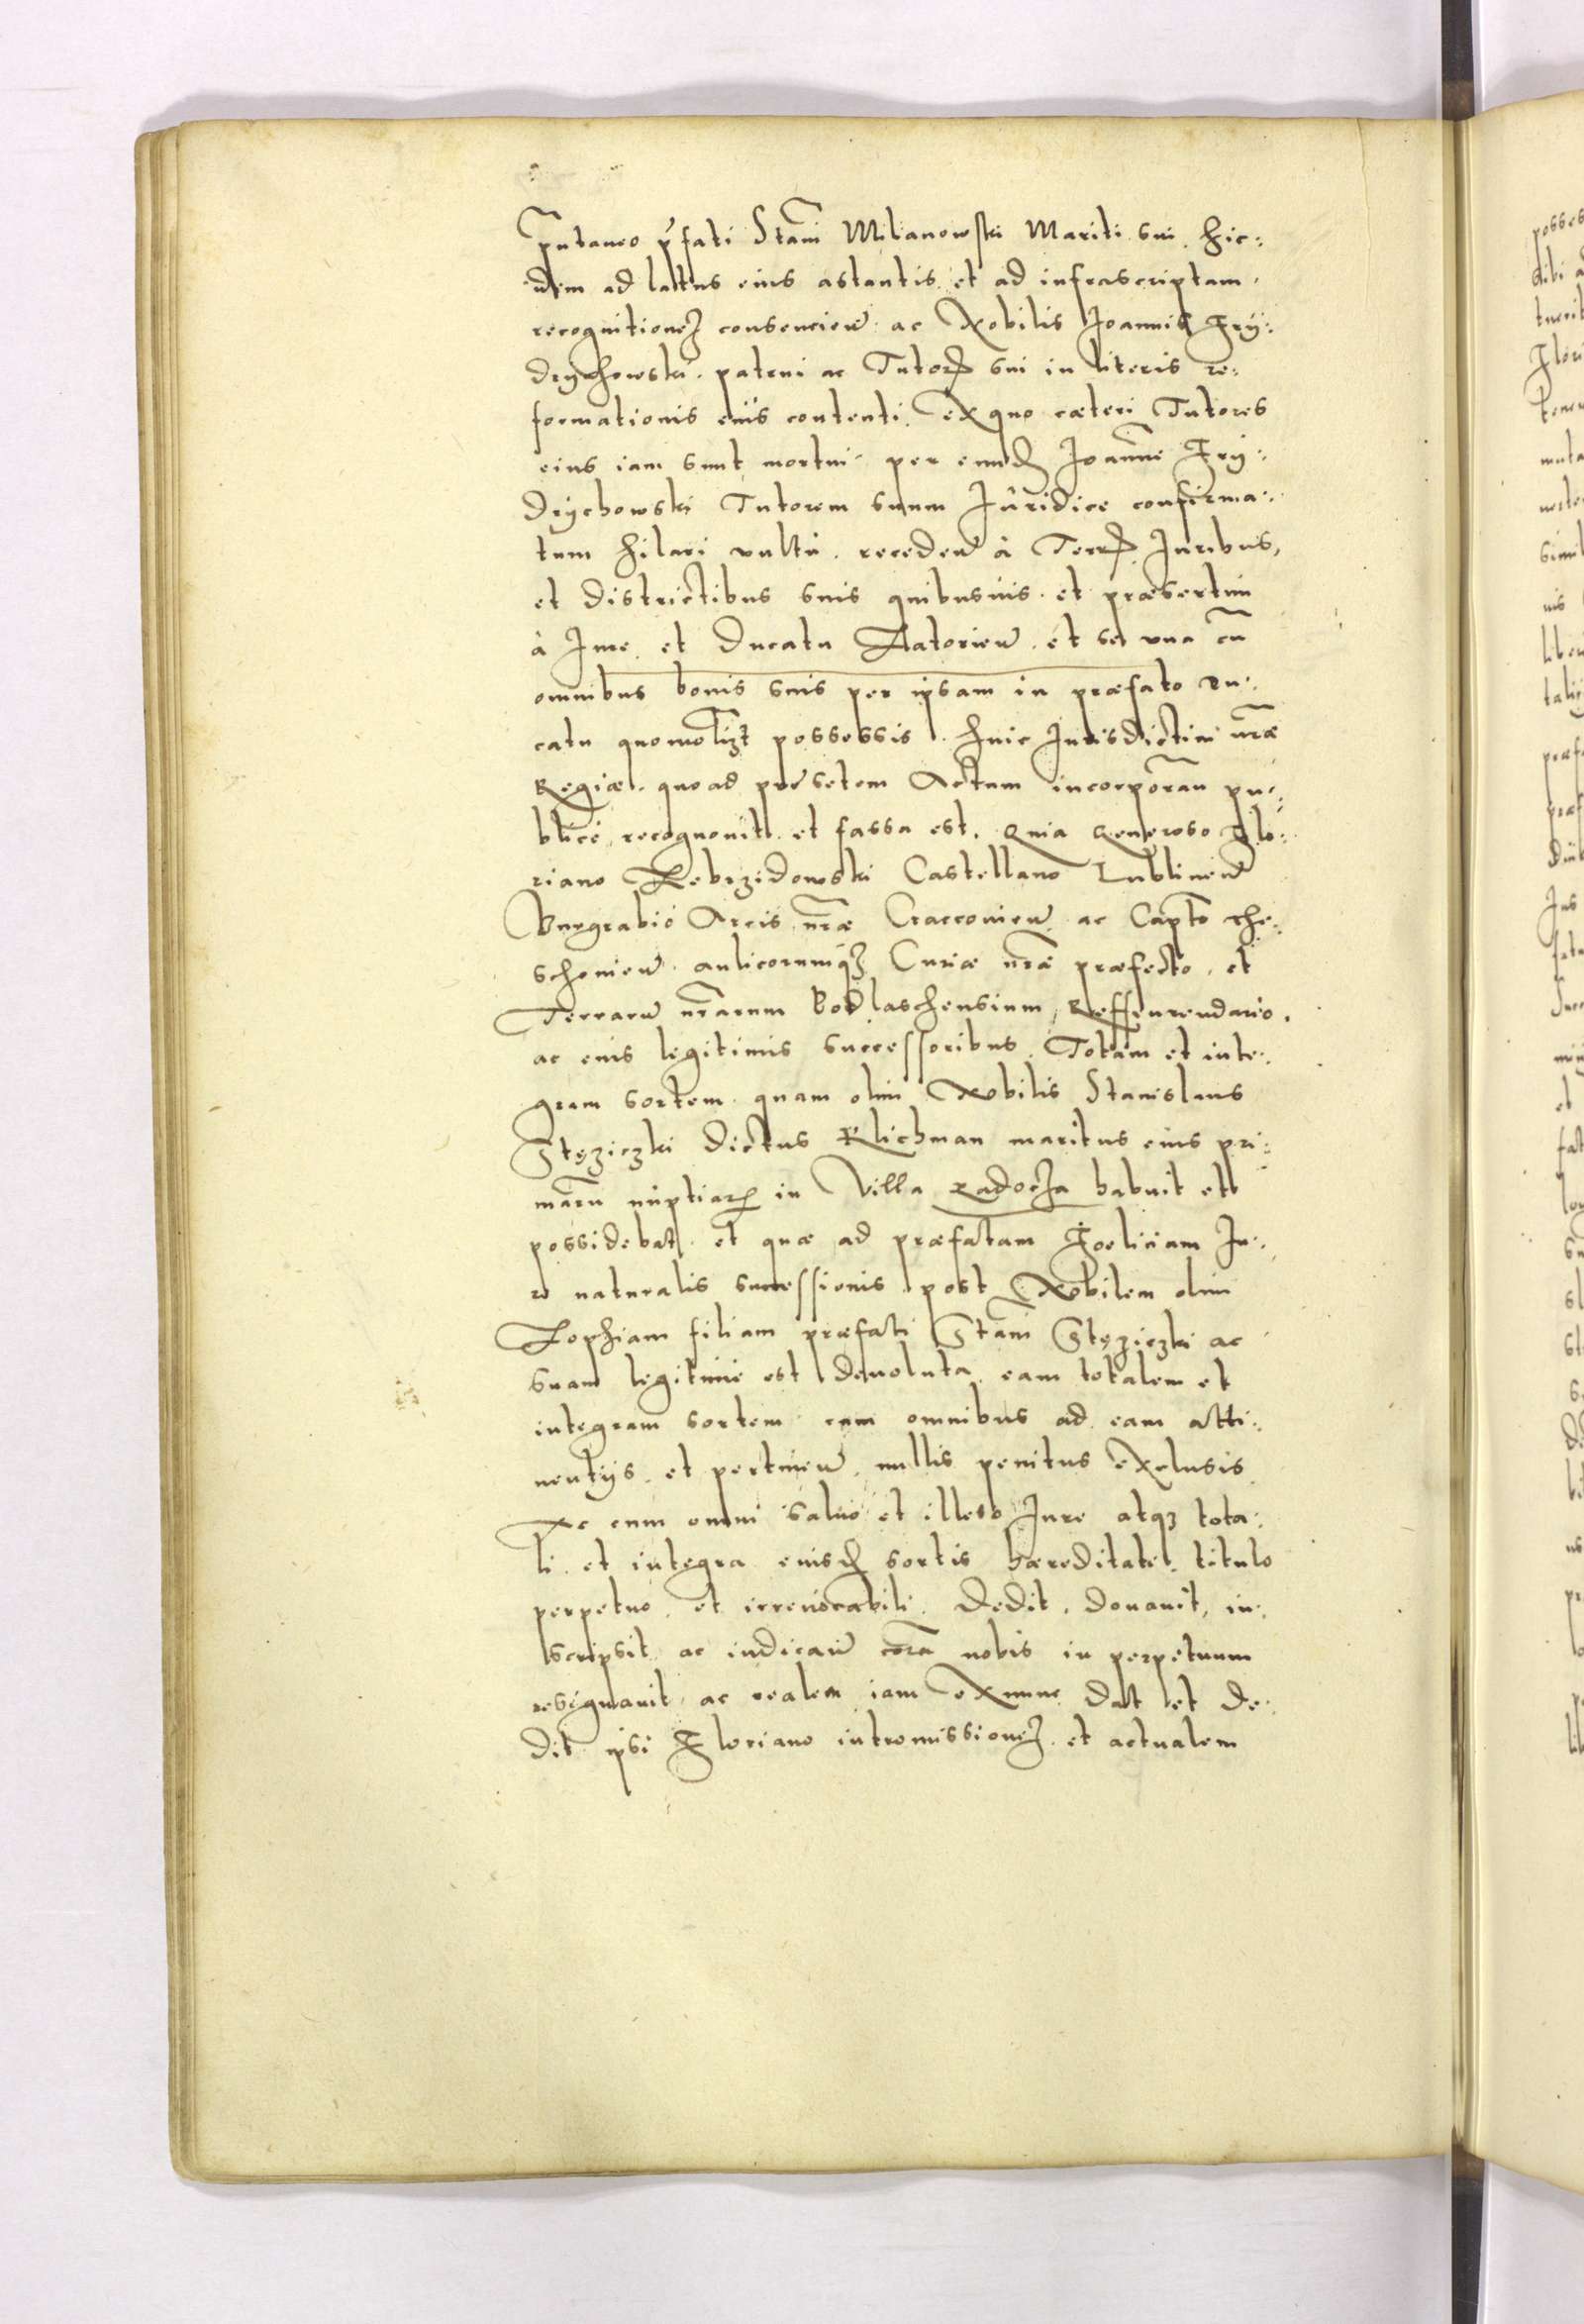 p̄ntaneo p̃fati Stañi Milanowski Mariti sui hic:
idem ad latus eius astantis et ad infrascriptam
recognitionē consencieñ ac Nobilis Joannis Fry:
drychowski patrui ac Tutoꝝ sui in literis re:
formationis eius contenti ex quo cæteri Tutores
eius iam sunt mortui per eunđ Joannē Fry:
drychowski Tutorem suum Juridice confirma:
tum hilari vultu recedeñ à Terꝝ Juribus,
et districtibus suis quibusuis et præsertim
à Jure et Ducatu Zatorieñ et se una cū
omnibus bonis suis per ipsam in præfato Du:
catu quomolzt possessis huic Jurisdictini nr̄æ
Regiæ quo ad præsētem Actum incorporan̄ pu:
blicè recognouit et fassa est. Quia Generoso Flo:
riano Zebrzidowski Castellano Lublineñ
Burgrabio Arcis nr̄æ Cracovieñ ac Capto The:
schonieñ aulicorumqꝫ Curiæ nr̄æ præfecto et
Terrarū nr̄arum Podlaschensium Refferendario.
ac eius legitimis successoribus Totam et inte:
gram sortem quam olim Nobilis Stanislaus
Stęziczki dictus Klichman maritus eius pri:
marū nuptiaꝝ in Villa Radocza habuit et
possidebat et quæ ad præfatam Foeliciam Ju:
re naturalis successionis post Nobilem olim
Zophiam filiam præfati Stañi Stęziczki ac
suam legitimè est deuoluta eam totalem et
integram sortem cum omnibus ad eam atti:
nentijs et pertineñ nullis penitus exclusis
Ac cum omni saluo et illeso Jure atqꝫ tota:
li et integra eiusđ sortis hæreditate titulo
perpetuo et irreuocabili Dedit, donauit, in:
scripsit ac iudicarī corā nobis in perpetuum
resignauit ac realem iam exnunc dat et de:
dit ipsi Floriano intromissionē et actualem